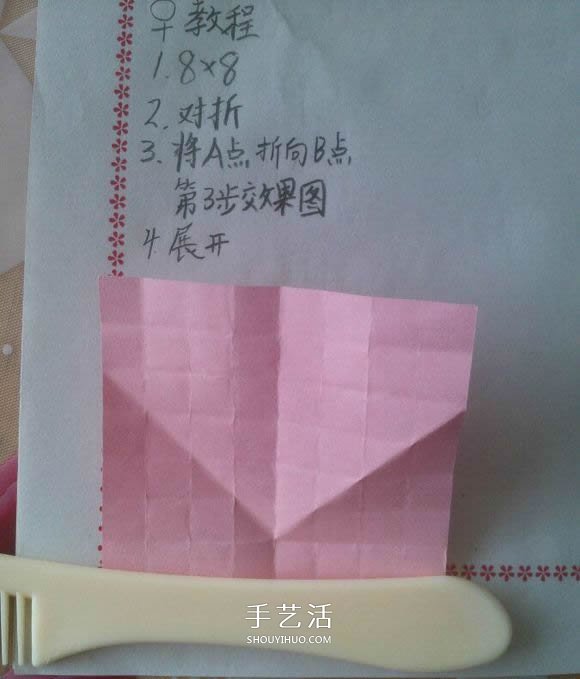 ♀教程
1. 8×8
2. 对折
3. 将A点折向B点
第3步效果图
4. 展开
手艺活
SHOUYIHUO.COM